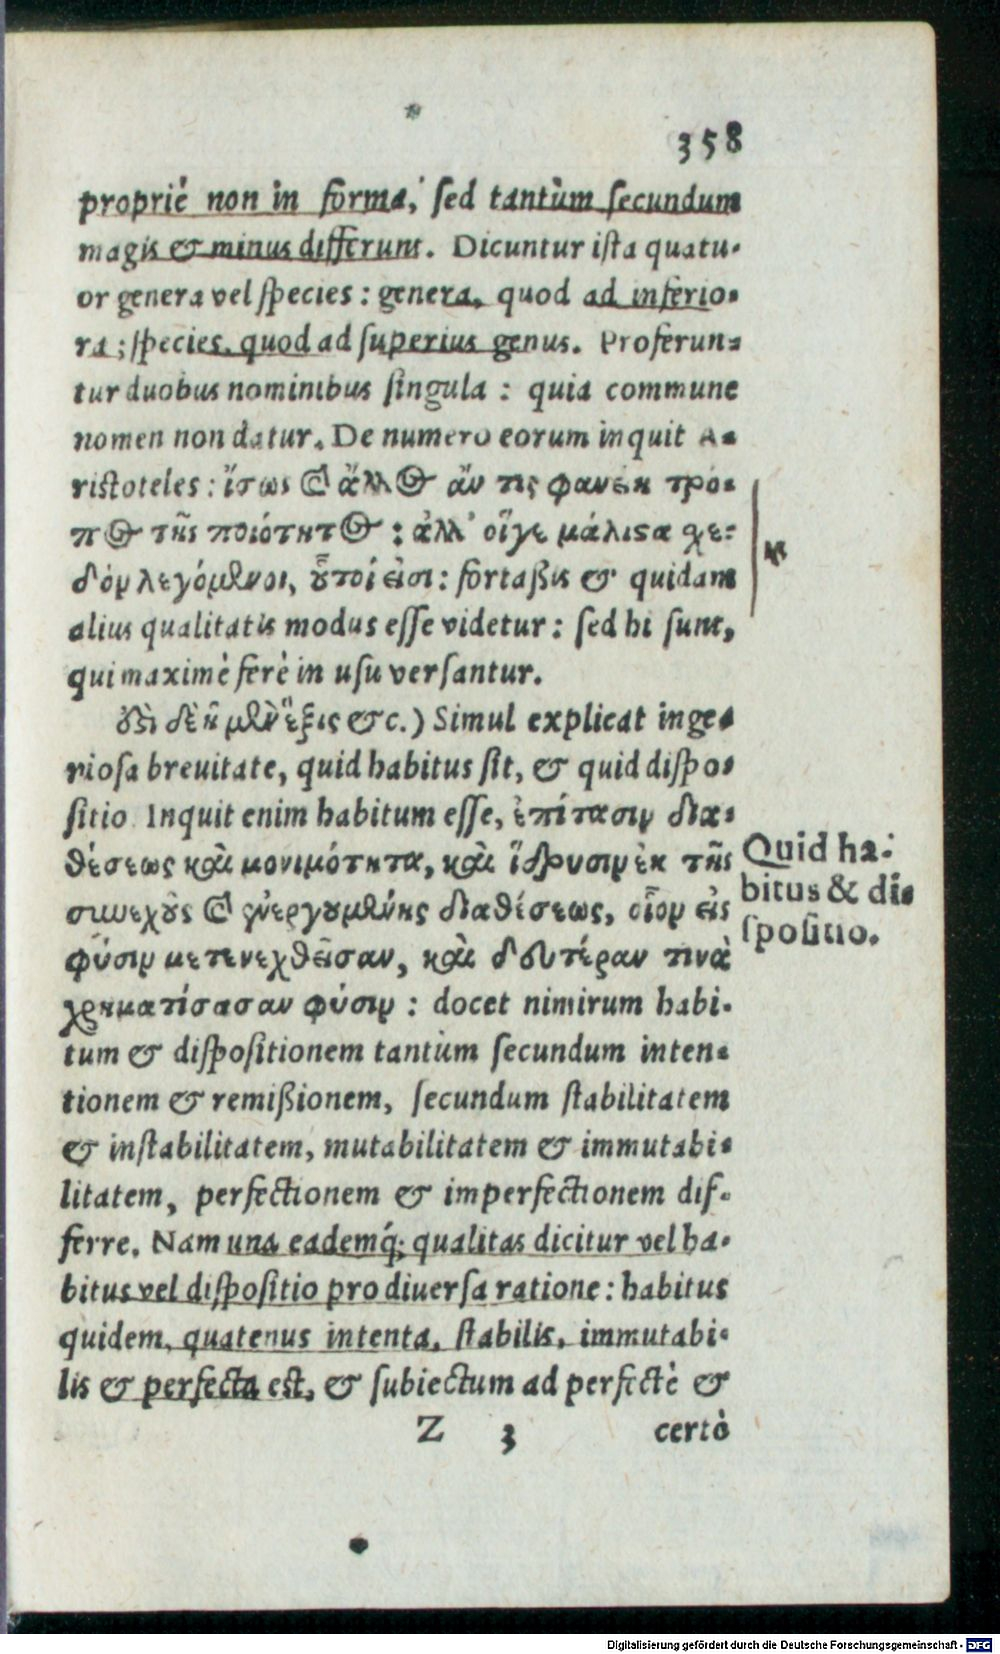 358
propriè non in forma, sed tantùm secundum
magis & minus differunt. Dicuntur ista quatu-
or genera vel species: genera, quod ad inferio-
ra; species, quod ad superius genus. Proferun-
tur duobus nominibus singula: quia commune
nomen non datur. De numero eorum inquit A-
ristoteles: ἴσως καὶ ἄλλος ἄν τις φανείη τρό-
πος τῆς ποιότητος: ἀλλ' οἵγε μάλιστα χε-
δὸν λεγόμενοι, οὗτοί εἰσι: fortaßis & quidam
alius qualitatis modus esse videtur: sed hi sunt,
qui maximè ferè in usu versantur.
ὅτι δὲ ἡ μὲν ἕξις &c.) Simul explicat inge-
niosa brevitate, quid habitus sit, & quid dispo-
sitio. Inquit enim habitum esse, ἐπίτασιν δια-
θέσεως καὶ μονιμότητα, καὶ ἵδρυσιν ἐκ τῆς
συνεχοῦς καὶ ἐνεργουμένης διαθέσεως, οἷον εἰς
φύσιν μετενεχθεῖσαν, καὶ δευτέραν τινὰ
χρηματίσασαν φύσιν: docet nimirum habi-
tum & dispositionem tantùm secundum inten-
tionem & remißionem, secundum stabilitatem
& instabilitatem, mutabilitatem & immutabi-
litatem, perfectionem & imperfectionem dif-
ferre. Nam una eademq́; qualitas dicitur vel ha-
bitus vel dispositio pro diuersa ratione: habitus
quidem, quatenus intenta, stabilis, immutabi-
lis & perfecta est, & subiectum ad perfectè &
Z 3 certò
Quid ha-
bitus & di-
spositio.
Digitalisierung gefördert durch die Deutsche Forschungsgemeinschaft - DFG